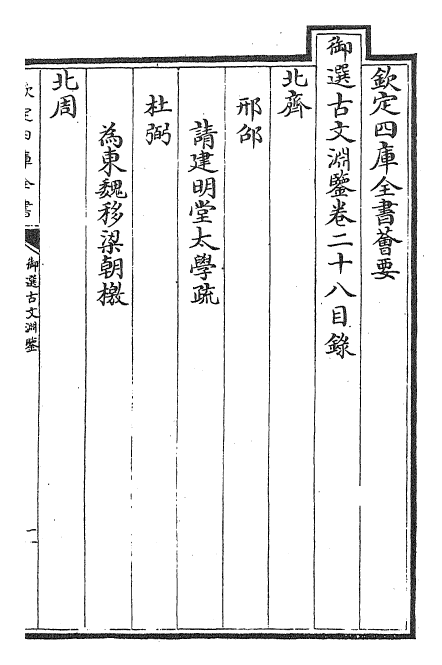 欽定四庫全書薈要
御選古文淵鑒卷二十八目錄
北齊
邢邵
請建明堂太學疏
杜弼
為東魏移梁朝檄
北周
欽定四庫全書
御選古文淵鑒
一